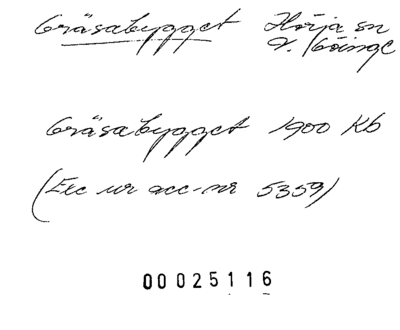 Gräsabygget Hörja sn
V. Göinge
Gräsabygget 1900 Kb
(Exc ur acc-nr 5359)
00025116